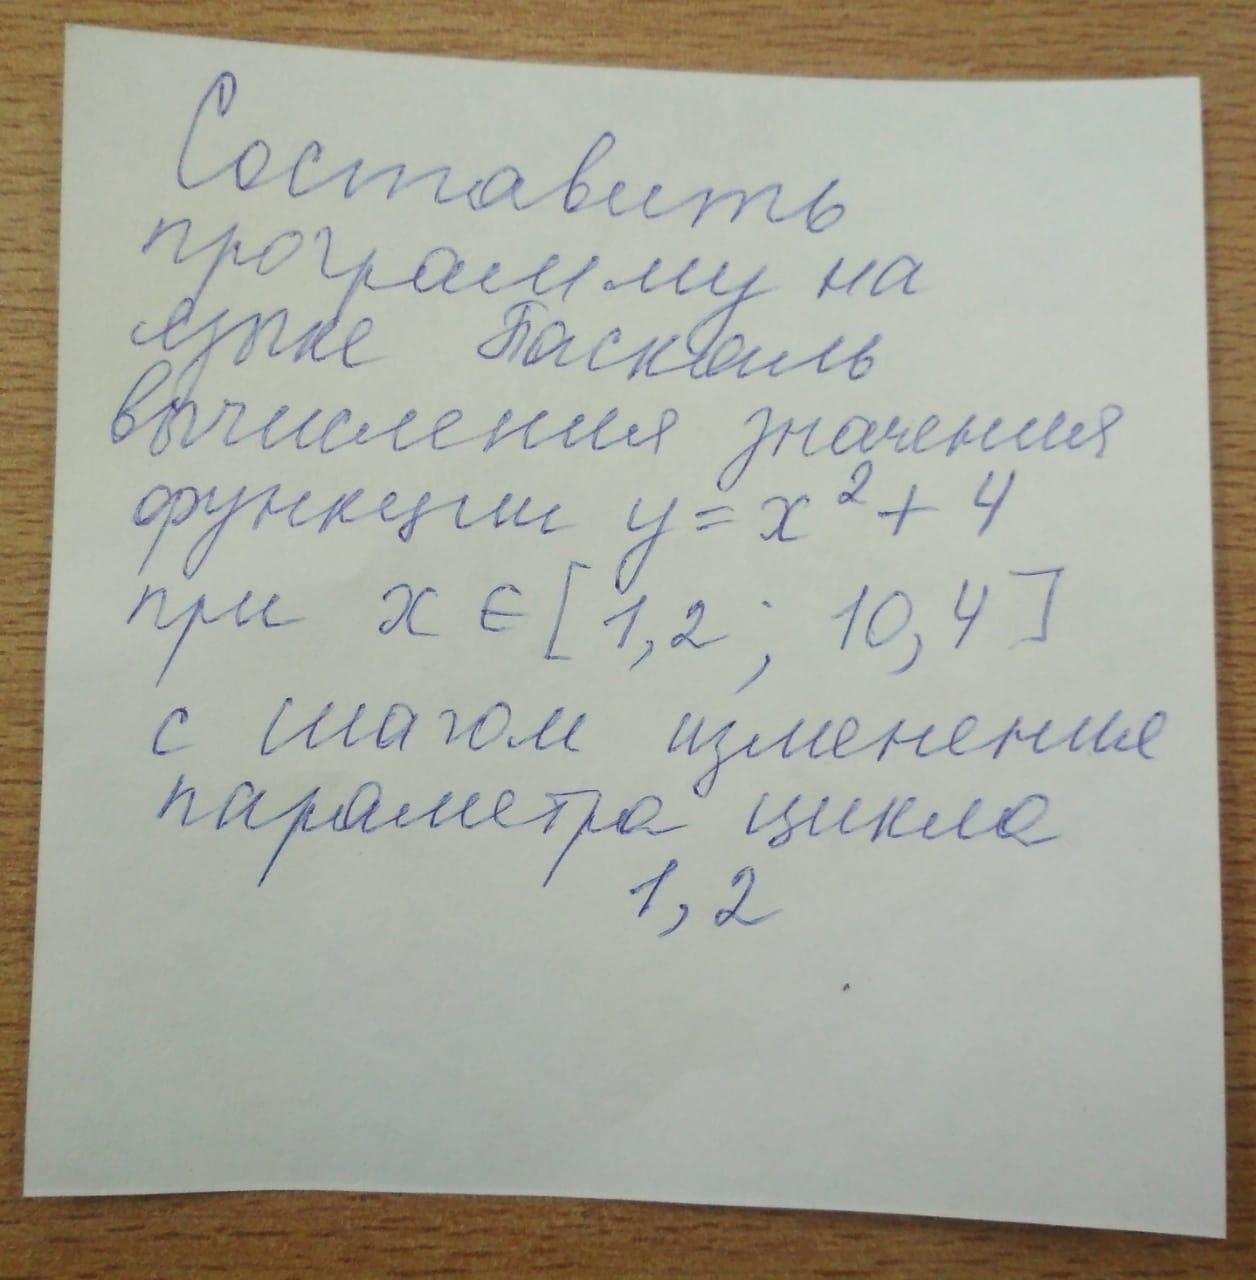 Составить
программу на
языке Паскаль
вычисления значения
функции y = x² + 4
при x ∈ [1,2; 10,4]
с шагом изменение
параметра цикла
1,2